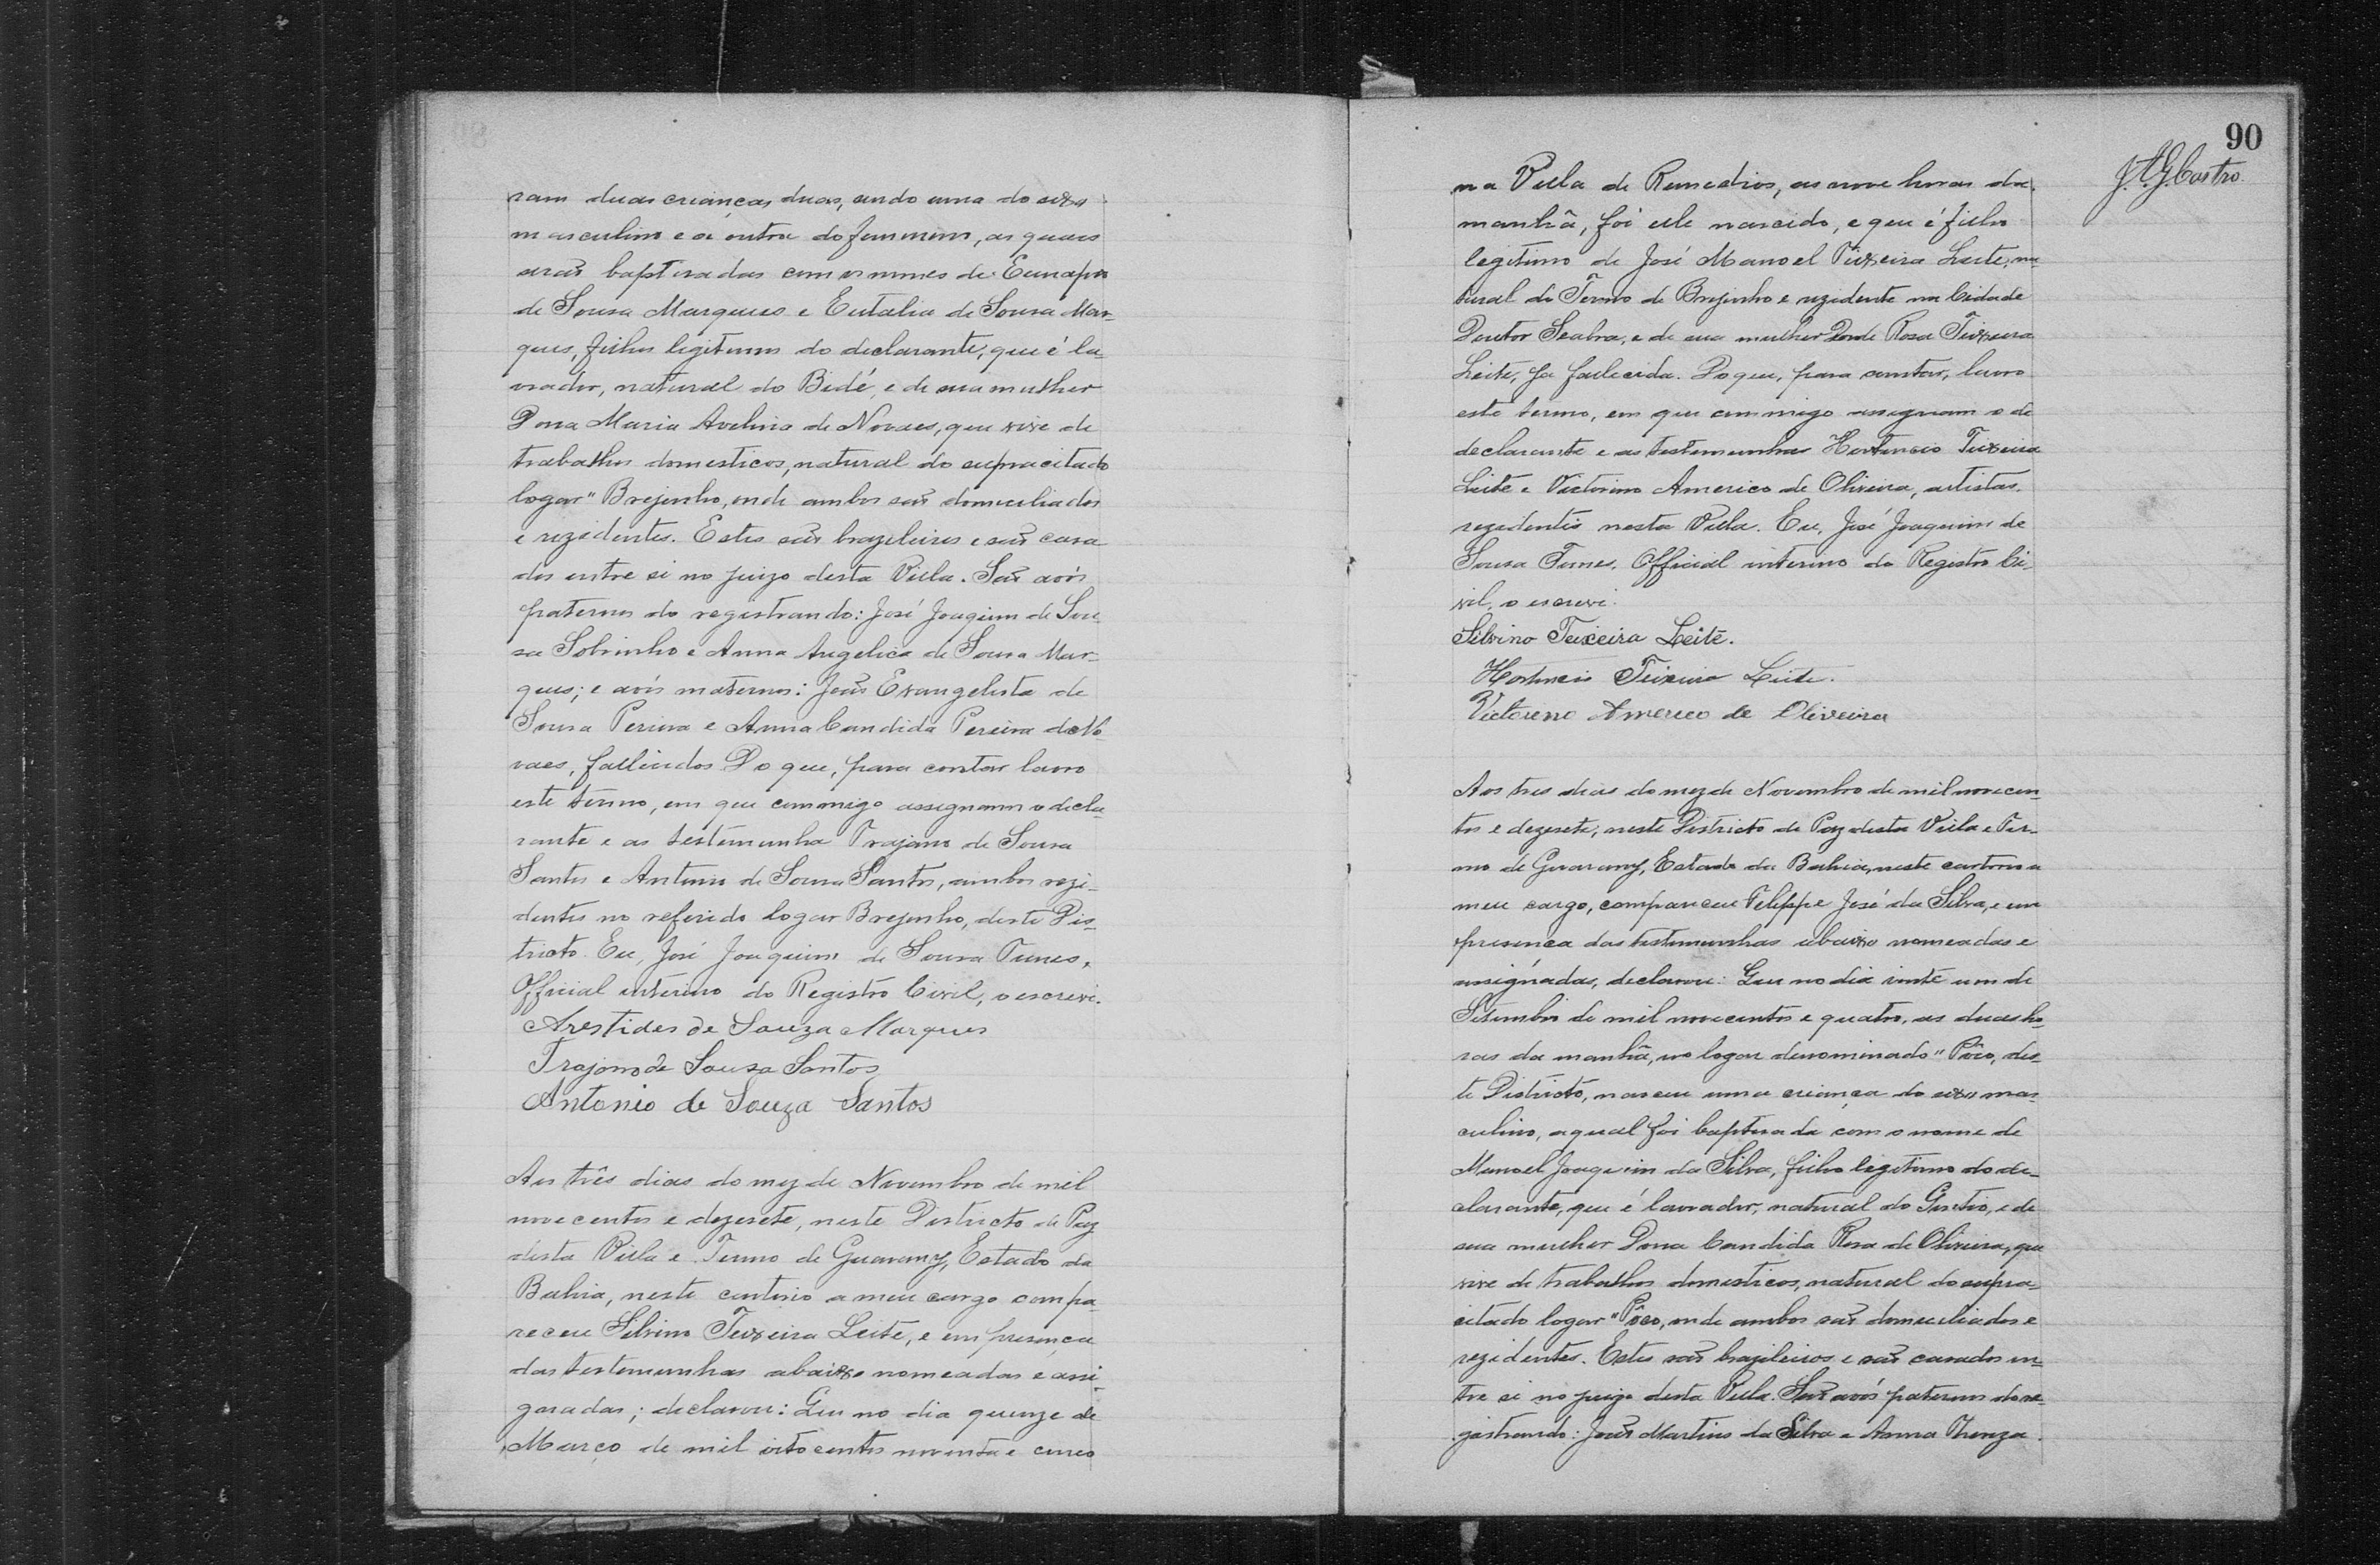 ram duas crianças duas, sendo uma do sexo
masculino e a outra do feminino, as quaes
serão baptisadas com os nomes de Eunapio
de Sousa Marques e Eutalia de Sousa Mar-
ques, filhos legitimos do declarante, que é la-
vrador, natural do Bidé, e de sua mulher
Dona Maria Avelina de Novaes, que vive de
trabalhos domesticos, natural do supracitado
logar "Brejinho, onde ambos são domiciliados
e rezidentes. Estes são brazileiros e são casa
dos entre si no juizo desta Villa. São avós
paternos do registrando: José Joaquim de Sou-
sa Sobrinho e Anna Angelica de Sousa Mar-
ques; e avós maternos: João Evangelista de
Sousa Pereira e Anna Candida Pereira de No-
vaes, fallecidos Do que, para contar lavro
este termo, em que commigo assignam o decla-
rante e as testemunha Trajano de Sousa
Santos e Antonio de Sousa Santos, ambos rezi-
dentes no referido logar Brejinho, deste Dis-
tricto. Eu, José Joaquim de Sousa Tunes,
Official interino do Registro Civil, o escrevi.
Arestides de Souza Marques
Trajano de Sousa Santos
Antonio de Souza Santos
Aos três dias do mez de Novembro de mil
nove centos e dezesete, neste Districto de Paz
desta Villa e Termo de Guarany, Estado da
Bahia, neste cartorio a meu cargo compa-
receu Silvino Teixeira Leite, e em presença
das testemunhas abaixo nomeadas e assi-
gnadas; declarou: Que no dia quinze de
Março de mil oitocentos noventa e cinco
90
J. A. G. Castro.
na Villa de Remedios, as nove horas da
manhã, foi elle nascido, e que é filho
legitimo de José Manoel Teixeira Leite, na-
tural do Termo de Brejinho e rezidente na Cidade
Doutor Seabra, e de sua mulher Rosa Teixeira
Leite, ja fallecida. Do que, para constar, lavro
este termo, em que commigo assignam o de
declarante e as testemunhas Hortencio Teixeira
Leite e Victorino Americo de Oliveira, artistas,
rezidentes nesta Villa. Eu, José Joaquim de
Sousa Tunes, Official interino do Registro Ci-
vil, o escrevi.
Silvino Teixeira Leite.
Hortencio Teixeira Leite.
Victoreno Amereco de Oliveira
Aos tres dias do mez de Novembro de mil novecen-
tos e dezesete, neste Districto de Paz desta Villa e Ter-
mo de Guarany, Estado da Bahia, neste cartorio a
meu cargo, compareceu Felippe José da Silva, e em
presença das testemunhas abaixo nomeadas e
assignadas, declarou: Que no dia vinte um de
Setembro de mil novecentos e quatro, as duas ho-
ras da manhã, no logar denominado "Pôço, des-
te Districto, nasceu uma criança do sexo mas-
culino, a qual foi baptisada com o nome de
Manoel Joaquim da Silva, filho legitimo do de-
clarante, que é lavrador, natural do Gentio, e de
sua mulher Dona Candida Rosa de Oliveira, que
vive de trabalhos domesticos, natural do supra-
citado logar "Pôço, onde ambos são domiciliados e
rezidentes. Estes são brazileiros e são casados en-
tre si no juizo desta Villa. São avós paternos do re-
gistrando: João Martins da Silva e Anna Thereza